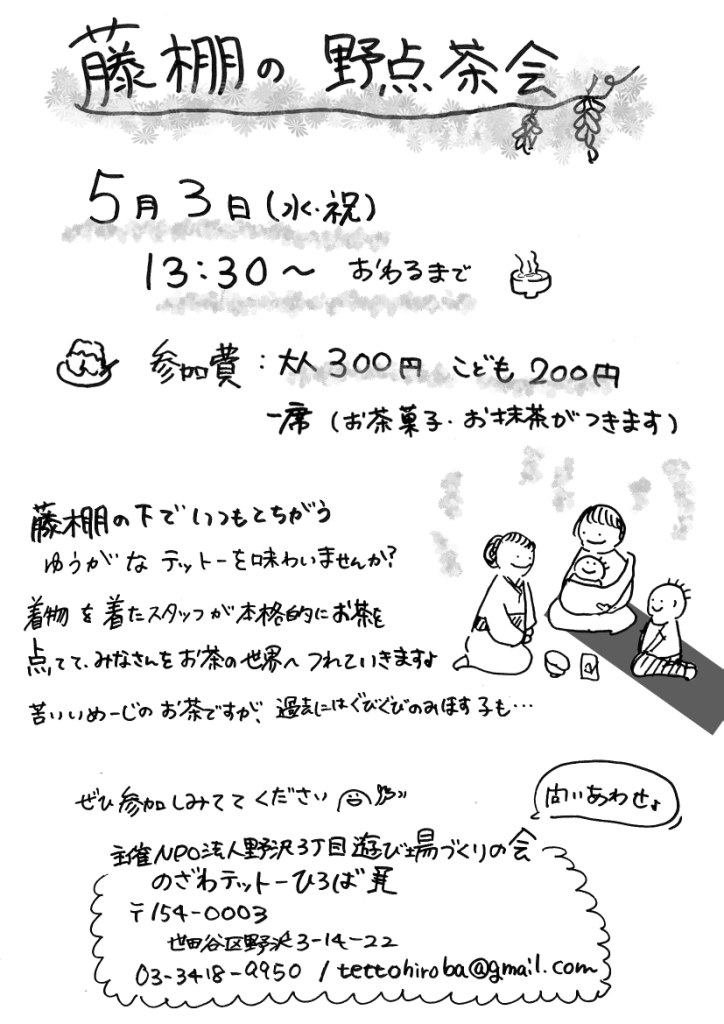 藤棚の 野点茶会
5月3日(水・祝)
13:30〜 おわるまで
参加費：大人300円 こども200円
一席(お茶菓子・お抹茶がつきます)
藤棚の下でいつもとちがう
ゆうがな テットーを味わいませんか?
着物を着たスタッフが本格的にお茶を
点てて、みなさんをお茶の世界へ つれていきますよ
苦いいめーじのお茶ですが、過去にはぐびぐびのみほす子も…
ぜひ参加しみてて ください
問いあわせ
主催NPO法人野沢3丁目遊び場づくりの会
のざわテットーひろば
〒154-0003
世田谷区野沢3-14-22
03-3418-9950 / tettohiroba@gmail.com